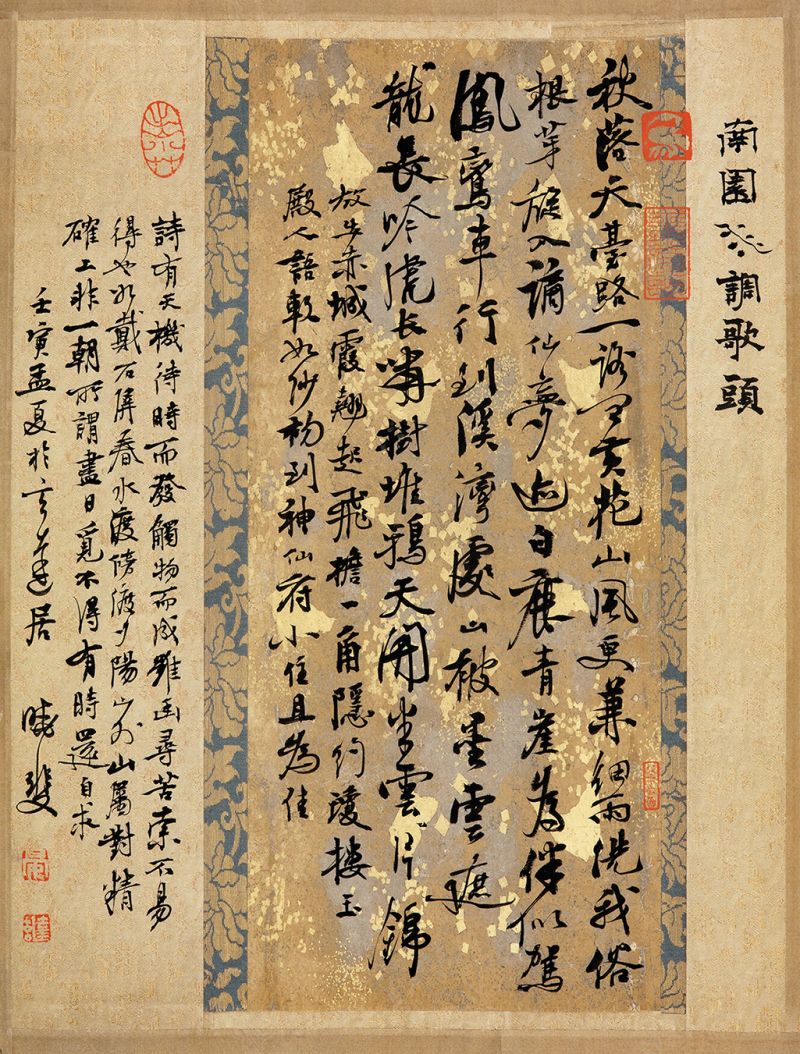 南園水調歌頭
秋落天臺路一諾黃花山風更兼細雨洗我俗
根芽旋入謫仙夢迹白鹿青崖為伴似駕
鳳鸞車行到溪灣處山被墨雲遮
龍長吟虎長嘯樹堆鴉天開半雲片錦
放出赤城霞翹起飛檐一角隱約瓊樓玉
殿人語軟如紗初到神仙府小住且為佳
詩有天機待時而發觸物而成雖幽尋苦索不易
得也如戴石屏春水渡傍渡夕陽山外山屬對精
確工非一朝所謂盡日覓不得有時還自求
壬寅孟夏於居